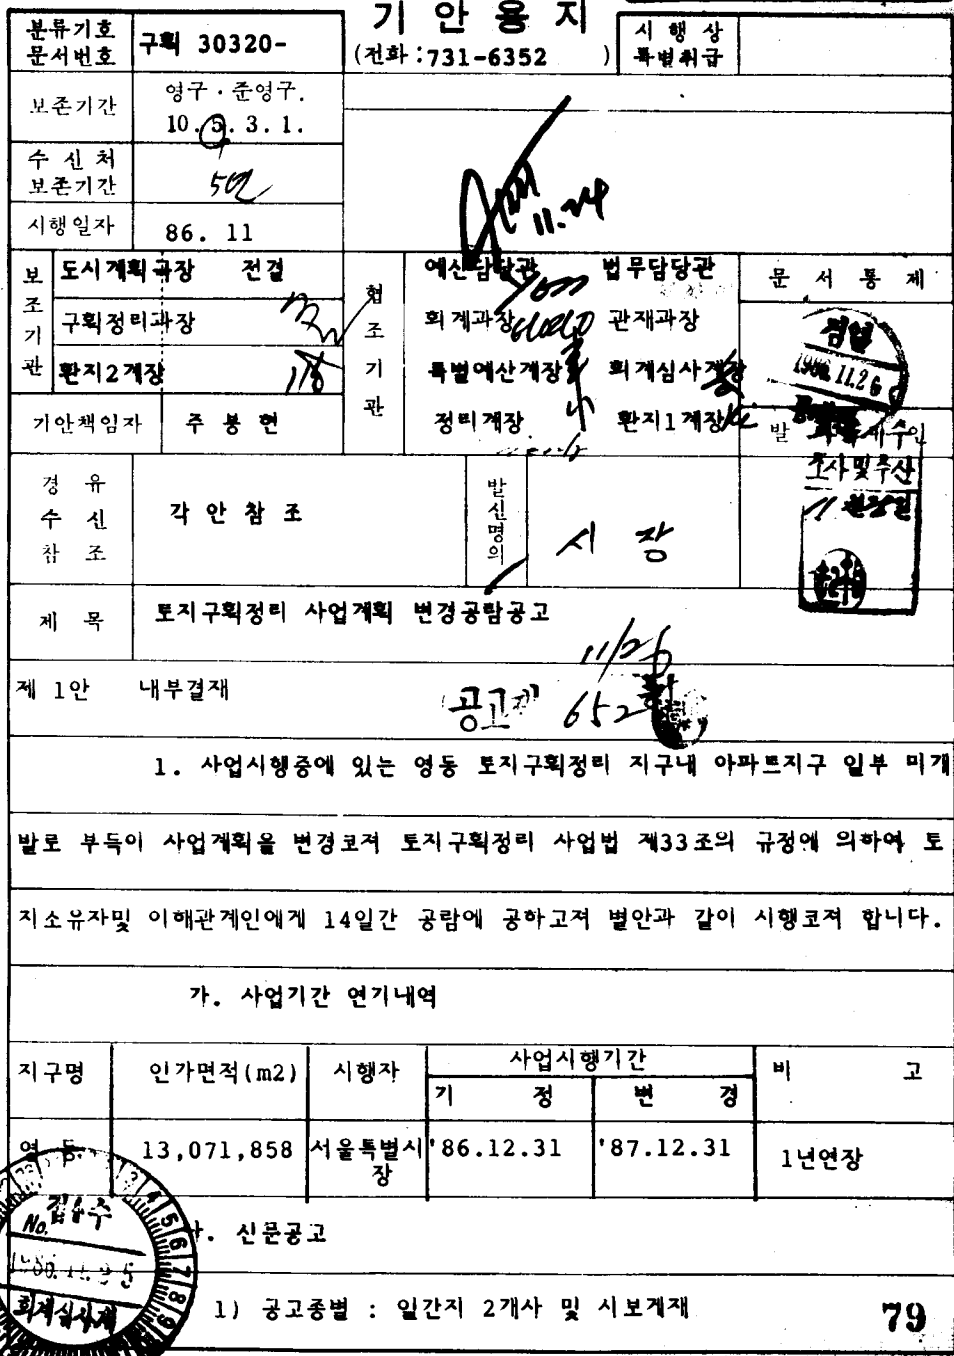 기안용지
분류기호
문서번호
구획 30320-
(전화:731-6352 )
시행상
특별취급
보존기간
영구·준영구.
10.5.3.1.
수신처
보존기간
5년
시행일자
86. 11
11.24
보조기관
도시계획국장 전결
구획정리과장
환지2계장
협조기관
예산담당관 법무담당관
회계과장 관재과장
특별예산계장 회계심사계장
정리계장 환지1계장
문서통제
1986.11.26
기안책임자
주봉현
발
인
경유
수신
참조
각안참조
발신명의
시 장
제 목
토지구획정리 사업계획 변경공람공고
11/26
제 1안 내부결재
공고제 652
1. 사업시행중에 있는 영동 토지구획정리 지구내 아파트지구 일부 미개
발로 부득이 사업계획을 변경코져 토지구획정리 사업법 제33조의 규정에 의하여 토
지소유자및 이해관계인에게 14일간 공람에 공하고져 별안과 같이 시행코져 합니다.
가. 사업기간 연기내역
지구명 인가면적(m2) 시행자 사업시행기간 비 고
기 정 변 경
영 동 13,071,858 서울특별시장 '86.12.31 '87.12.31 1년연장
No.
회계심사계
나. 신문공고
1) 공고종별 : 일간지 2개사 및 시보게재
79